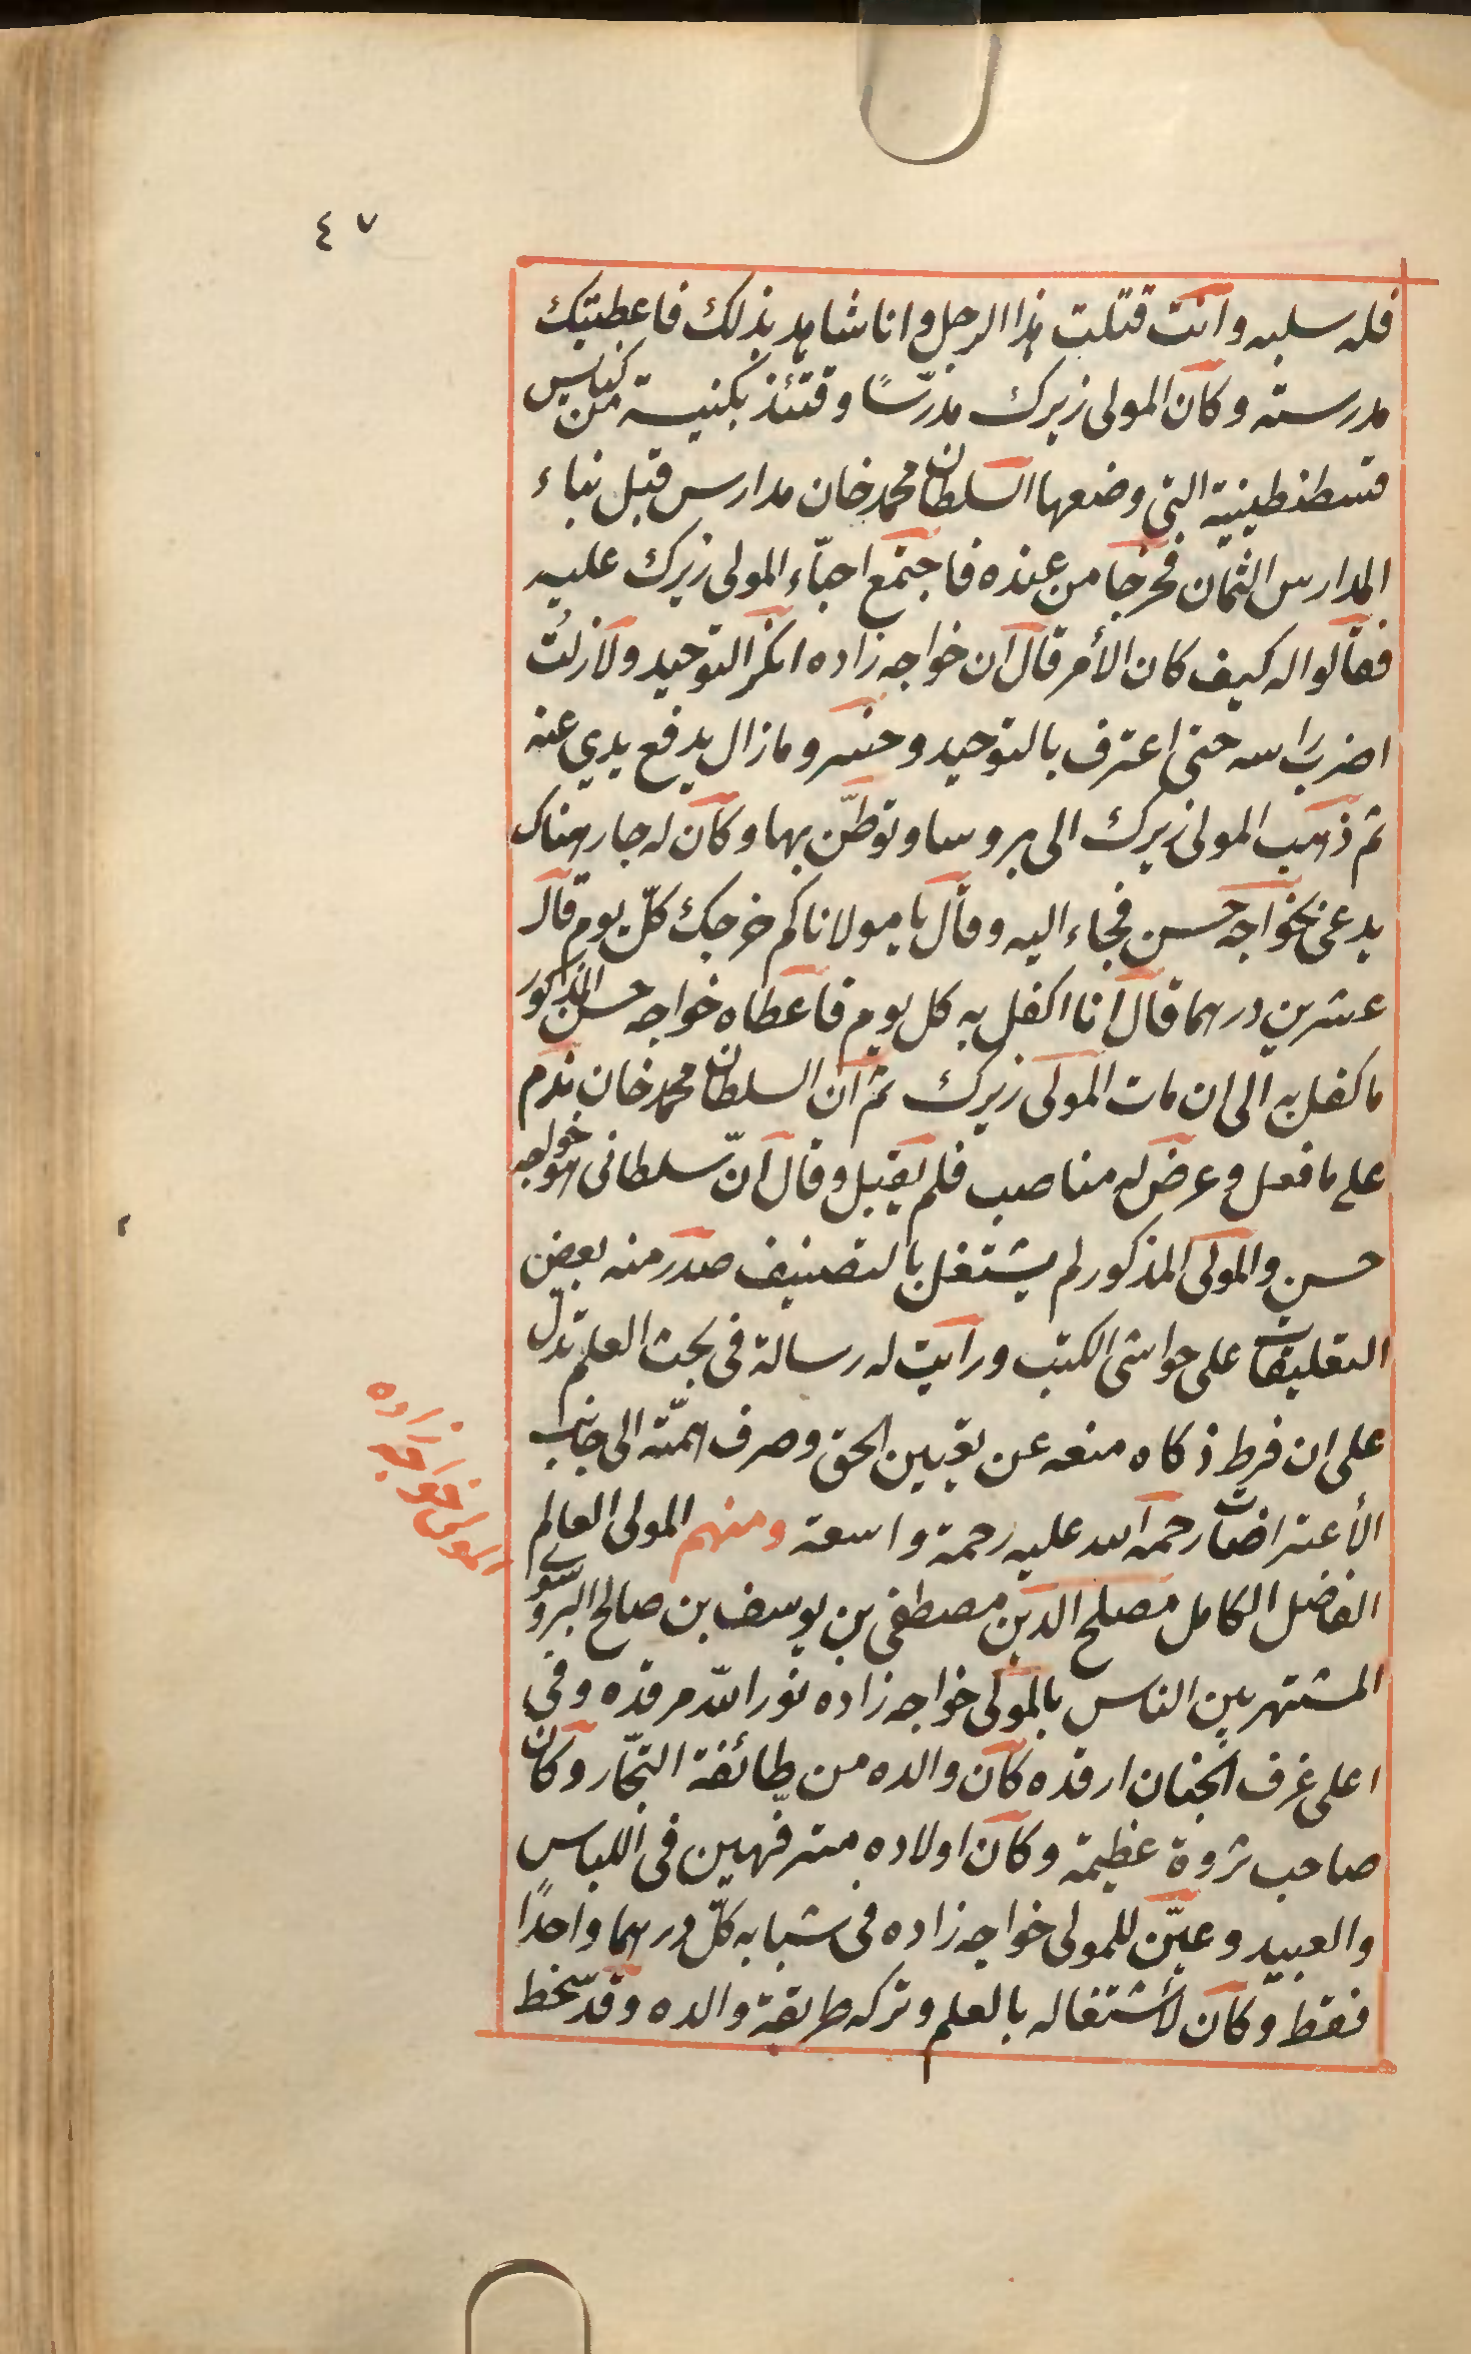 ٤٧
فله سلبه وانت قتلت هذا الرجل وانا شاهد بذلك فاعطيتك
مدرسته وكان المولى زيرك مدرّسًا وقتئذ بكنيسة من كنايس
قسطنطينية التي وضعها السلطان محمد خان مدارس قبل بناء
المدارس الثمان فخرجا من عنده فاجتمع احبّاء المولى زيرك عليه
فقالوا له كيف كان الأمر قال ان خواجه زاده انكر التوحيد ولازلت
اضرب راسه حتى اعترف بالتوحيد وخسرو مازال يدفع يدي عنه
ثم ذهب المولى زيرك الى بروسا وتوطّن بها وكان له جار هناك
يدعى بخواجه حسن فجاء اليه وقال يا مولانا كم خرجك كلّ يوم قال
عشرين درهما قال انا اكفل به كل يوم فاعطاه خواجه حسن المذكور
ما كفل به الى ان مات المولى زيرك ثم ان السلطان محمد خان ندم
على ما فعل وعرض له مناصب فلم يقبل وقال انّ سلطاني هو خواجه
حسن والمولى المذكور لم يشتغل بالتصنيف صدر منه بعض
التعليقات على حواشي الكتب ورايت له رسالة في بحث العلم تدلّ
على ان فرط ذكاه منعه عن تعيين الحق وصرف همّته الى جانب
الأعتراضات رحمه الله عليه رحمة واسعة ومنهم المولى العالم
الفاضل الكامل مصلح الدين مصطفى بن يوسف بن صالح البروسوي
المشتهر بين الناس بالمولى خواجه زاده نور الله مرقده وفي
اعلى غرف الجنان ارقده كان والده من طائفة التجّار وكان
صاحب ثروة عظيمة وكان اولاده مترفهين في اللباس
والعبيد وعيّن للمولى خواجه زاده في شبابه كلّ درهما واحدًا
فقط وكان لأشتغاله بالعلم وتركه طريقة والده وقد سخط
المولى خواجه زاده